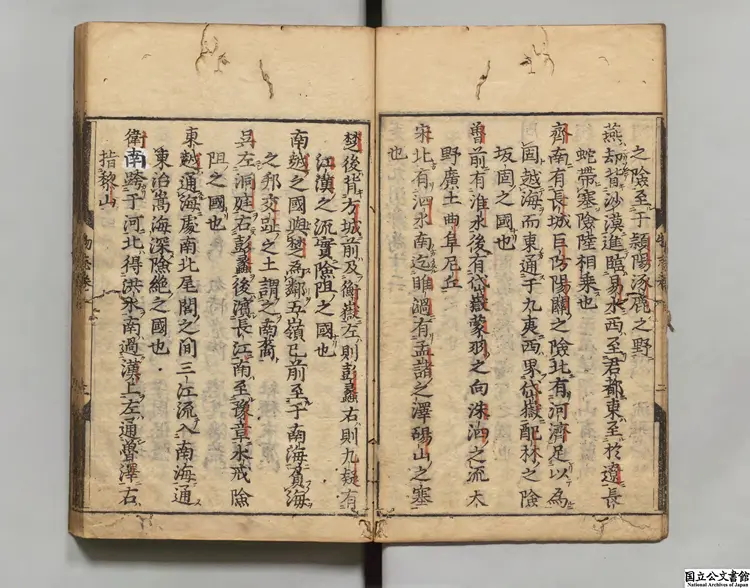 之險至于潁陽涿鹿之野
燕却背沙漠進臨易水西至君都東至於遼長
蛇帶塞險陸相乗也
齊南有長城巨防陽關之險北有河濟足以為
固越海而東通于九夷西界岱嶽配林之險
坂固之國也
魯前有淮水後有岱嶽蒙羽之向洙泗之流大
野廣土曲阜尼丘
宋北有泗水南迄睢渦有孟諸之澤碭山之塞
也
楚後背方城前及衡嶽左則彭蠡右則九疑有
江漢之流實險阻之國也
南越之國與楚為鄰五嶺已前至于南海負海
之邦交趾之土謂之南裔
吳左洞庭右彭蠡後濱長江南至豫章水戒險
阻之國也
東越通海處南北尾閭之間三江流入南海通
東治嵩海深險絶之國也
衛南跨于河北得洪水南過漢上左通魯澤右
指黎山
国立公文書館
National Archives of Japan